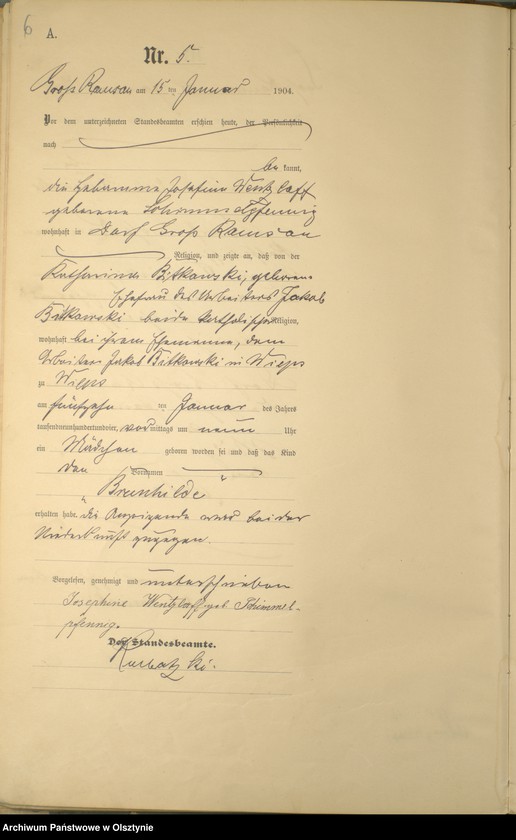 6
A.
Nr. 5.
Groß Ramsau am 15 ten Januar 1904.
Vor dem unterzeichneten Standesbeamten erschien heute, der Persönlichkeit
nach
be kannt,
die Hebamme Josefine Wentzlaff
geborene Schimmelpfennig
wohnhaft in Dorf Groß Ramsau
Religion, und zeigte an, daß von der
Katharina Bitkowski, geborene
Ehefrau des Arbeiters Jakob
Bitkowski beide katholischer Religion,
wohnhaft bei ihrem Ehemanne, dem
Arbeiter Jakob Bitkowski in Wieps
zu Wieps
am fünfzehn ten Januar des Jahres
tausendneunhundertundvier, vor mittags um neun Uhr
ein Mädchen geboren worden sei und daß das Kind
den Vornamen
„Brunhilde“
erhalten habe. die Anzeigende war bei der
Niederkunft zugegen.
Vorgelesen, genehmigt und unterschrieben
Josephine Wentzlaff geb Schimmel-
pfennig.
Der Standesbeamte.
Archiwum Państwowe w Olsztynie